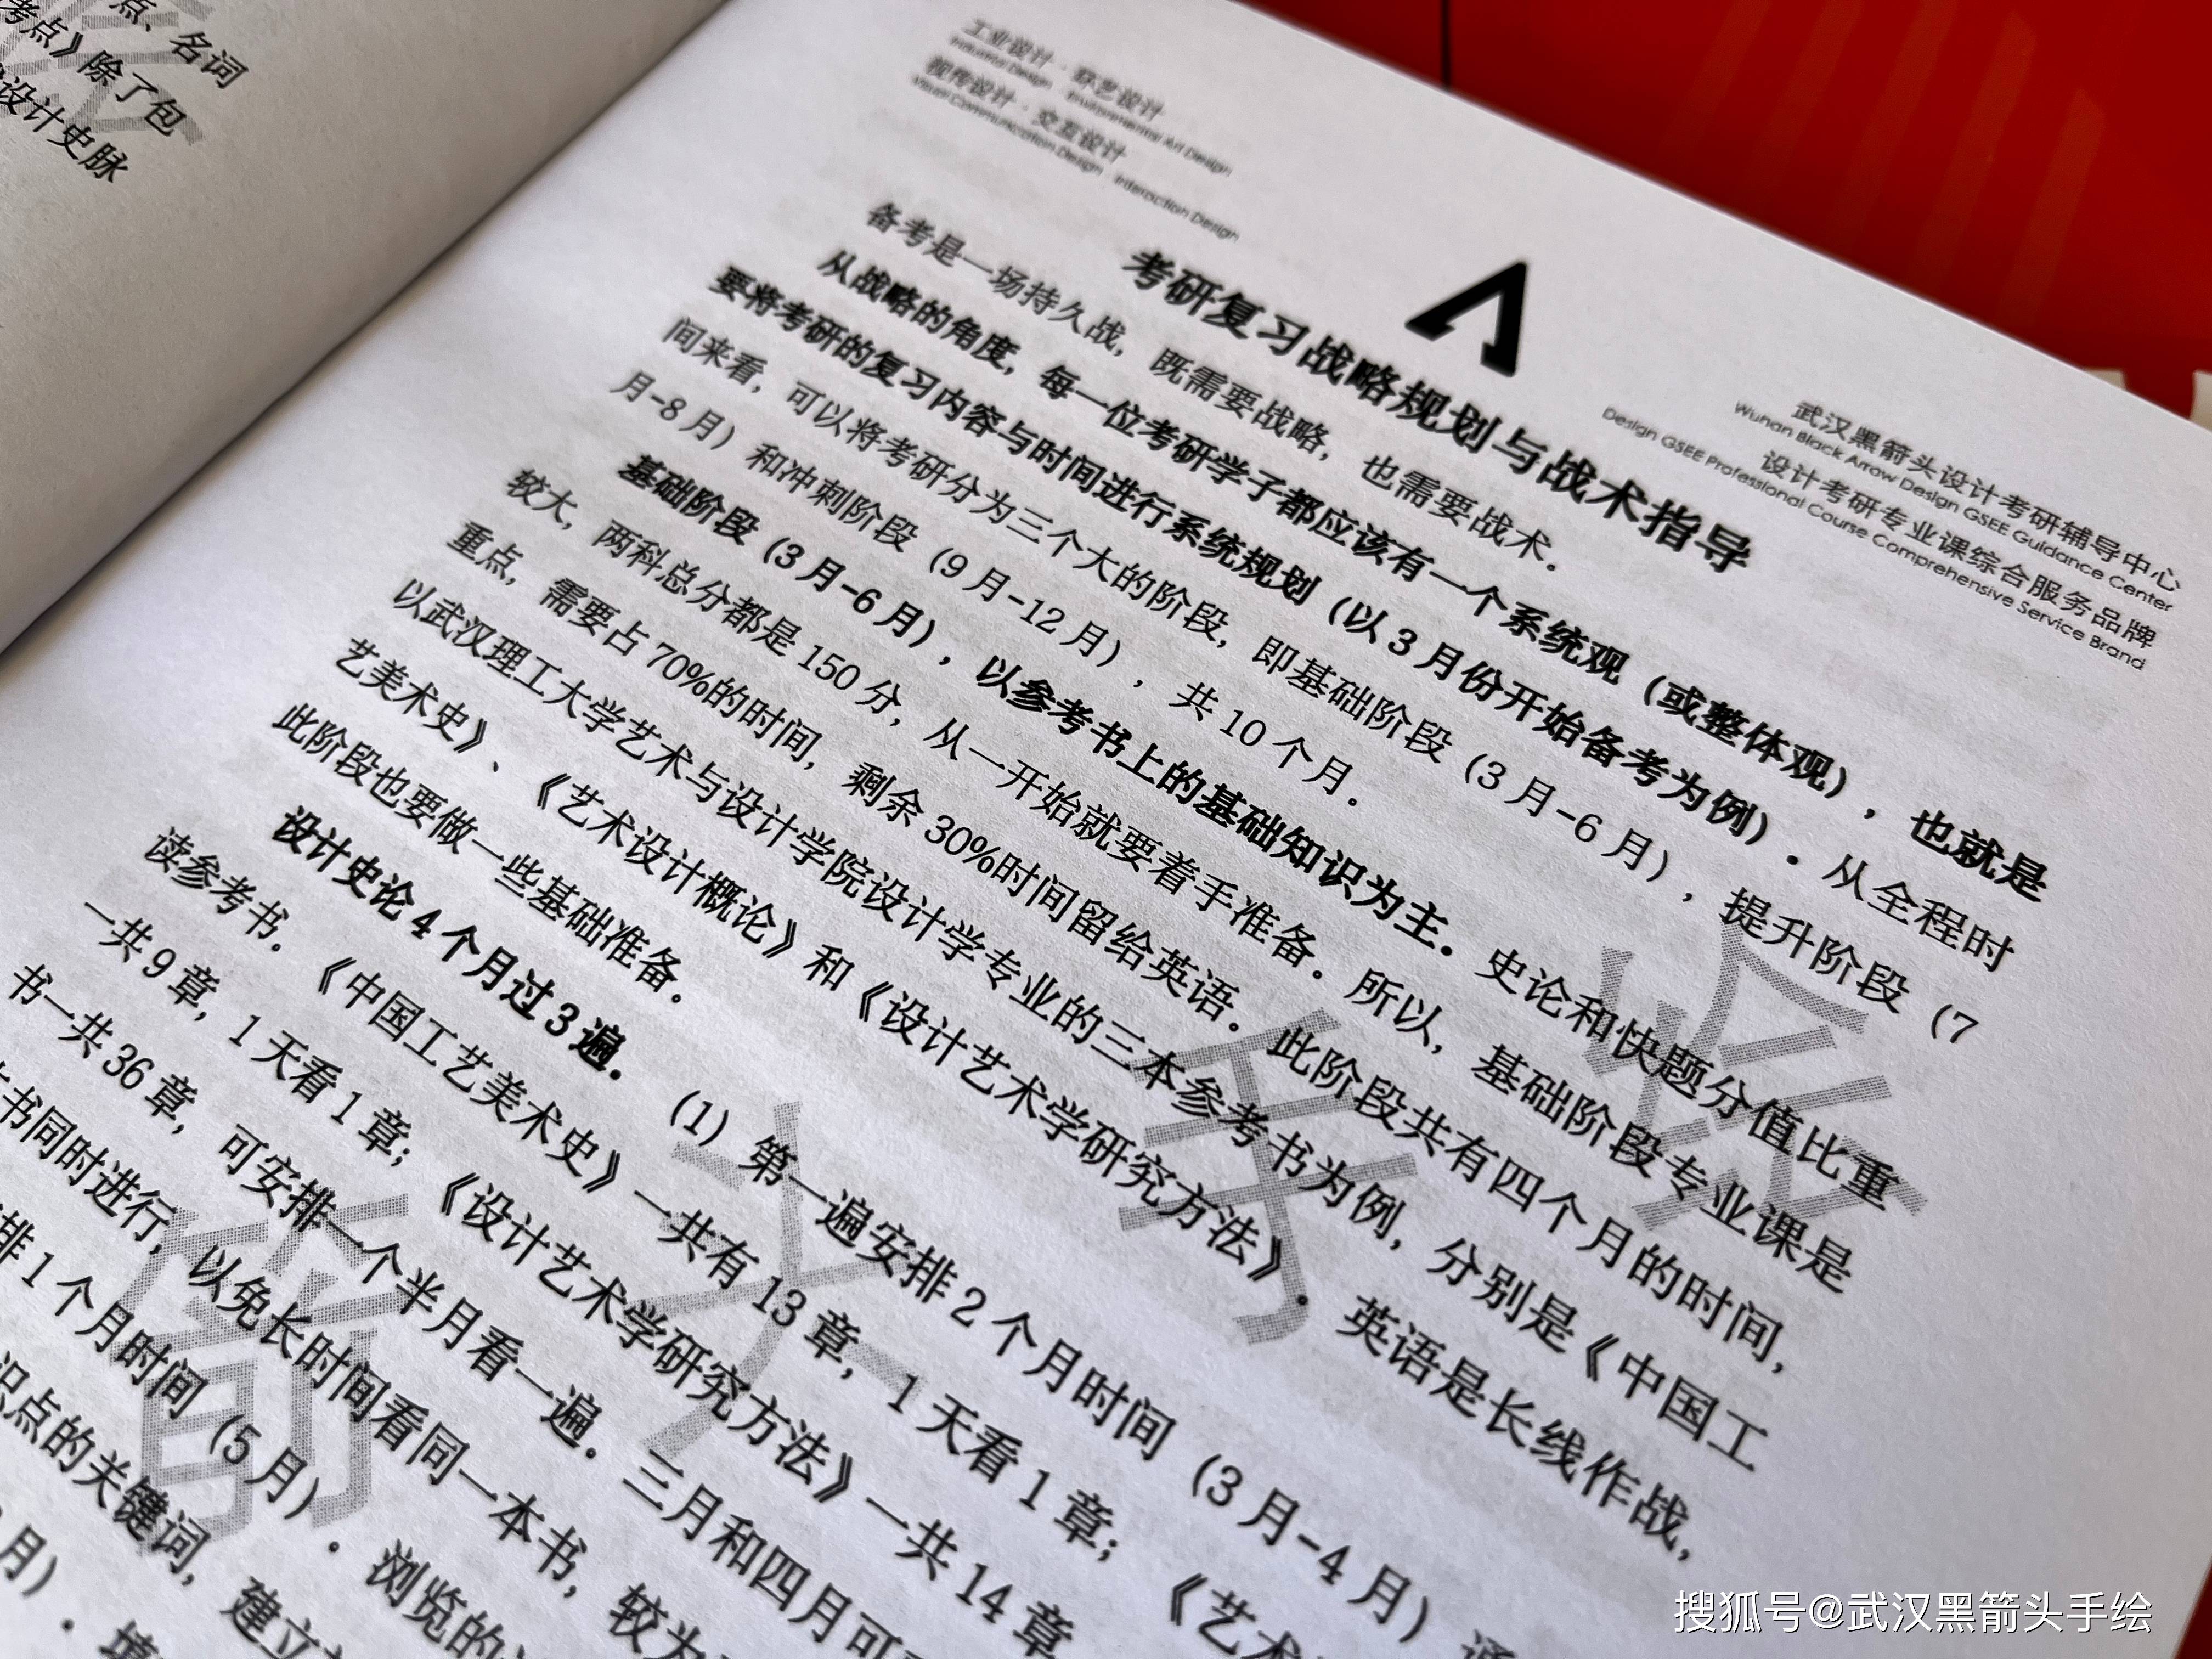 点、名词
考点》除了包
设计史脉
工业设计·环艺设计
Industrial Design · Environmental Art Design
视传设计·交互设计
Visual Communication Design · Interaction Design
武汉黑箭头设计考研辅导中心
Wuhan Black Arrow Design GSEE Guidance Center
设计考研专业课综合服务品牌
Design GSEE Professional Course Comprehensive Service Brand
考研复习战略规划与战术指导
备考是一场持久战，既需要战略，也需要战术．
从战略的角度，每一位考研学子都应该有一个系统观（或整体观），也就是
要将考研的复习内容与时间进行系统规划（以 3 月份开始备考为例）．从全程时
间来看，可以将考研分为三个大的阶段，即基础阶段（3 月-6 月），提升阶段（7
月-8 月）和冲刺阶段（9 月-12 月），共 10 个月．
基础阶段（3 月-6 月），以参考书上的基础知识为主．史论和快题分值比重
较大，两科总分都是 150 分，从一开始就要着手准备．所以，基础阶段专业课是
重点，需要占 70%的时间，剩余 30%时间留给英语．此阶段共有四个月的时间，
以武汉理工大学艺术与设计学院设计学专业的三本参考书为例，分别是《中国工
艺美术史》、《艺术设计概论》和《设计艺术学研究方法》．英语是长线作战，
此阶段也要做一些基础准备．
设计史论 4 个月过 3 遍．（1）第一遍安排 2 个月时间（3 月-4 月）通
读参考书．《中国工艺美术史》一共有 13 章，1 天看 1 章；《艺术
一共 9 章，1 天看 1 章；《设计艺术学研究方法》一共 14 章
书一共 36 章，可安排一个半月看一遍．三月和四月可
书同时进行，以免长时间看同一本书，较为
排 1 个月时间（5 月）．浏览的
识点的关键词，建立
月）．
黑箭头考研
搜狐号@武汉黑箭头手绘